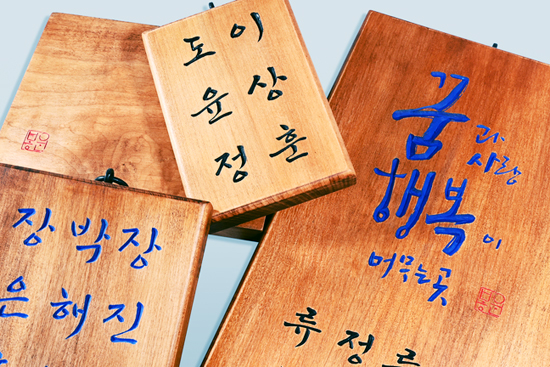 도윤정
이상훈
꿈과 사랑
행복이
머무는 곳
류 정 류
장은
박해
장진